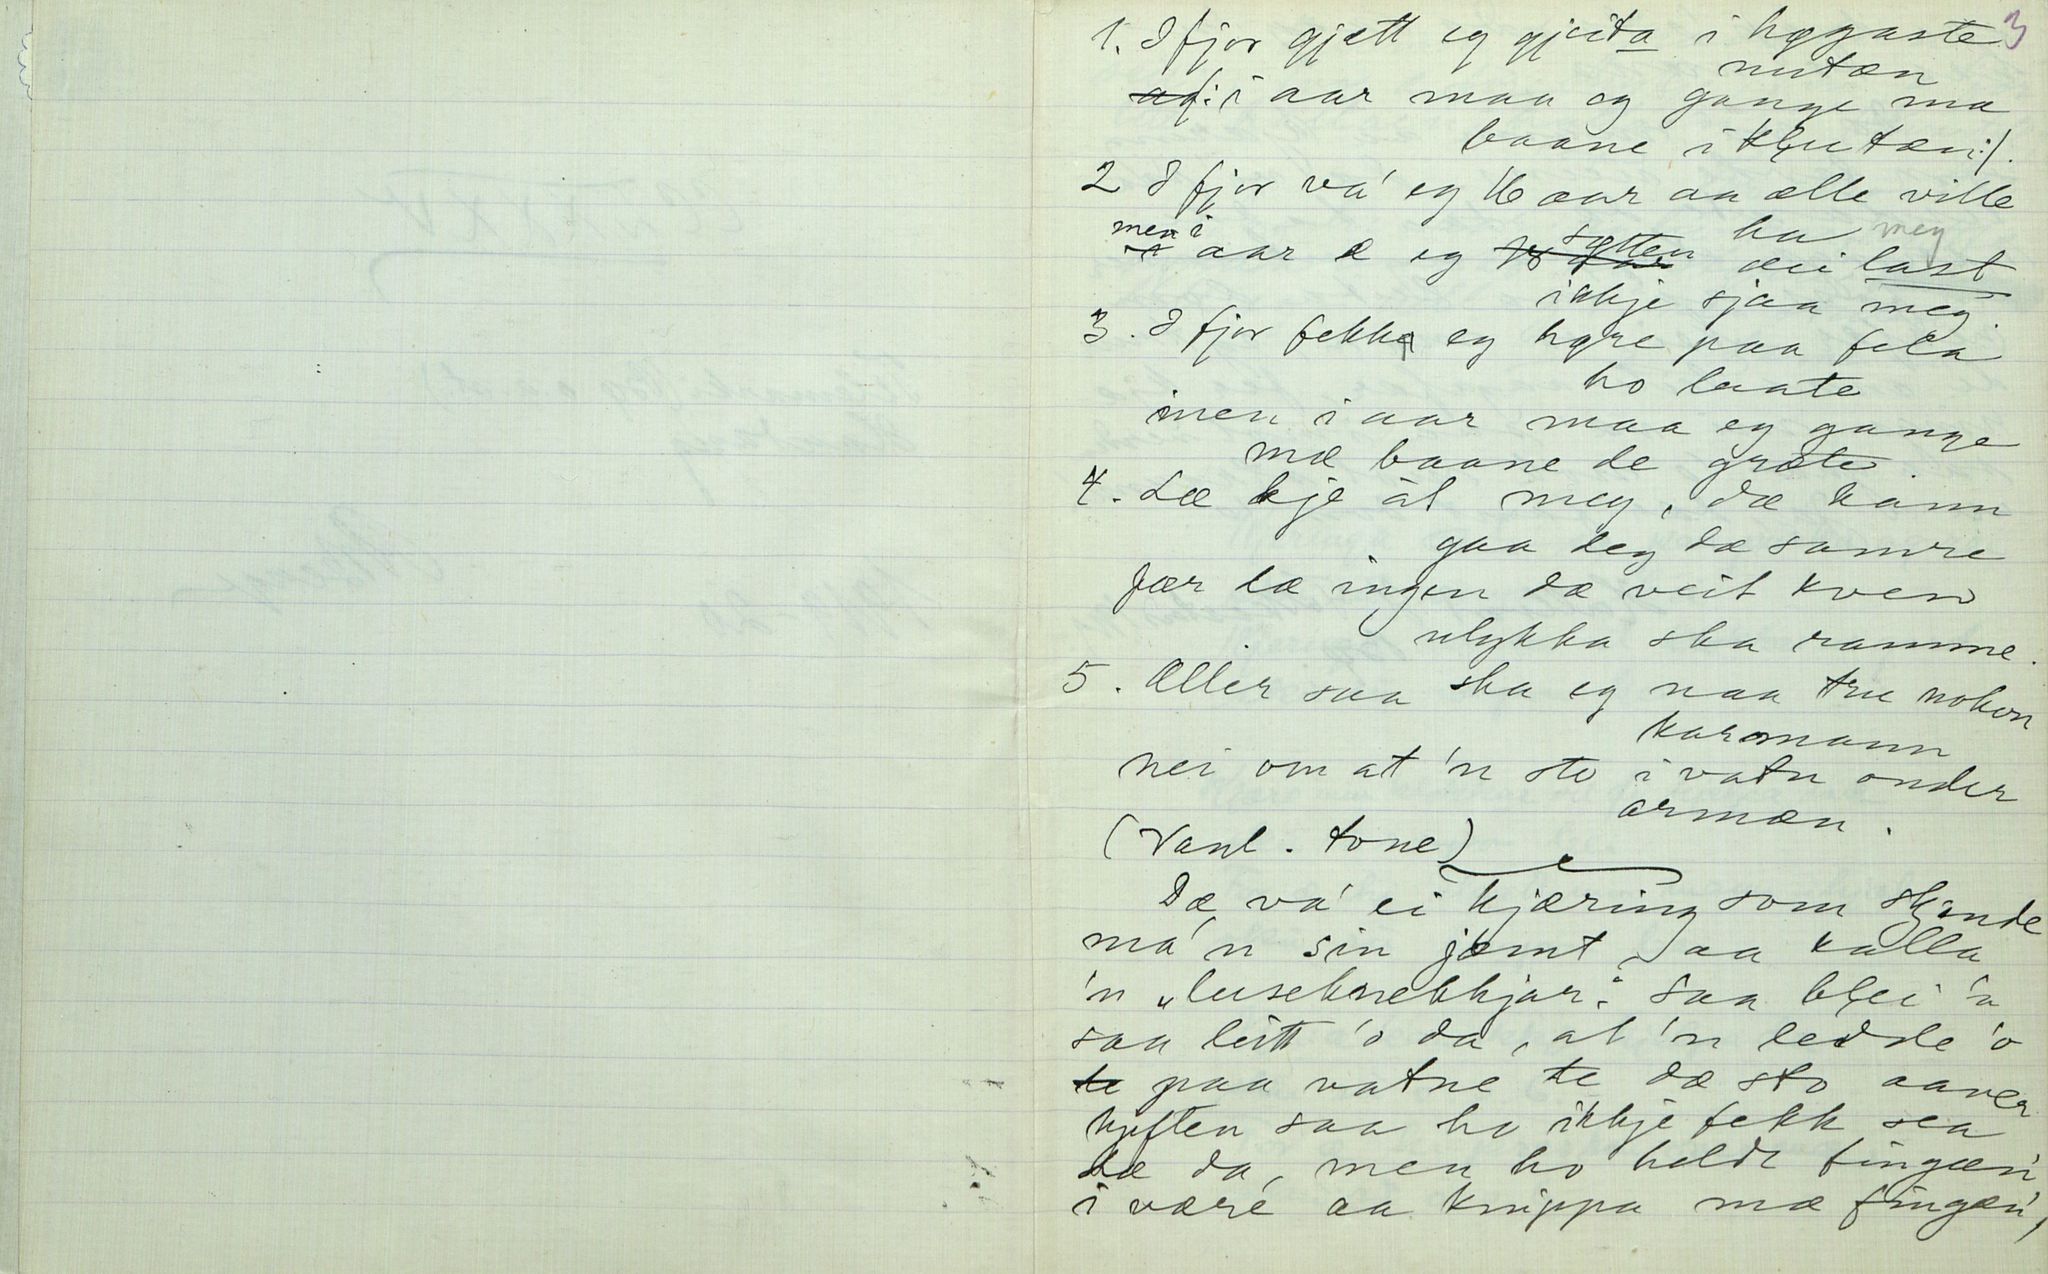 3
1. I fjor gjætt eg gjeita i høgaste
nutæn
i aar maa eg gange mæ
baane i klutæn :/.
2 I fjor va' eg 16 aar aa ælle ville
ha meg
men i aar æ eg sytten æi last
ikkje sjaa meg.
3. I fjor fekk eg høre paa fela
ho laate
men i aar maa eg gange
mæ baane de græte.
4. Læ kje åt meg, dæ kann
gaa deg dæ samme
fær dæ ingen dæ veit kven
ulykka ska ramme.
5. Ællir saa ska eg naa tru nokon
karmann
nei om at 'n sto i vatn onder
armæn.
(Vanl. tone)
Dæ va' ei kjæring som skjænde
mæ'n sin jamt, aa kalla
'n "luseknekkjar". Saa blei 'n
saa leitt 'o da, at 'n ledde 'o
paa vatne te dæ sto aaver
kjeften saa ho ikkje fekk sea
dæ da, men ho heldt fingæn'
i være aa knippa mæ fingæn',